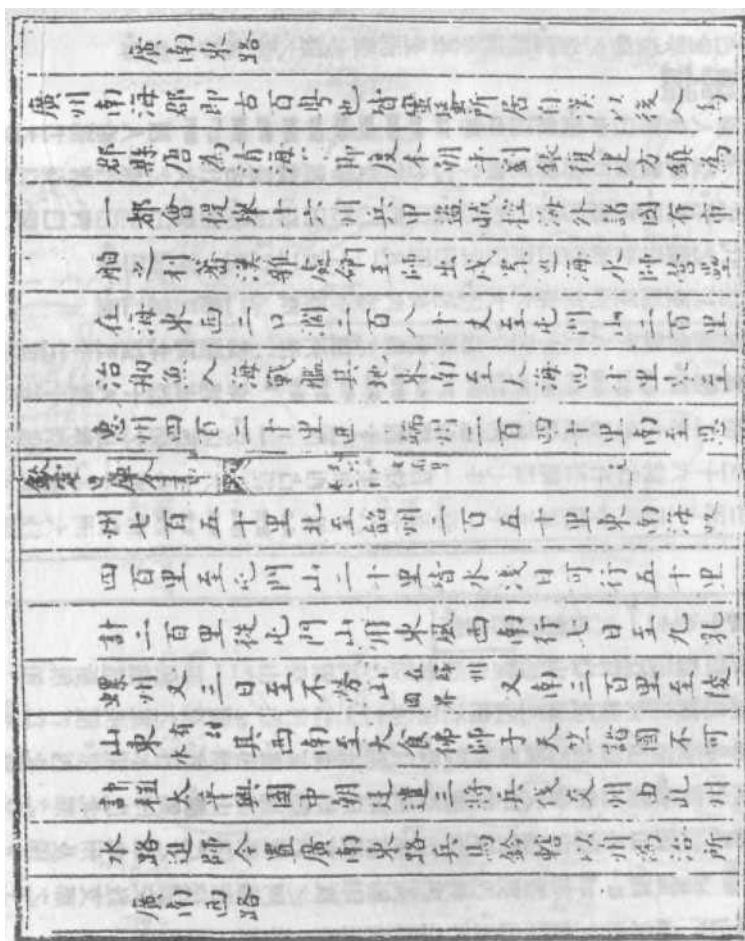 廣南東路
廣州南海郡即古百粵也皆蠻蜑所居自漢以後入為
郡縣唐為清海節度本朝平劉鋹復建方鎮為
一都會提舉十六州兵甲盜賊控海外諸國有市
舶之利蕃漢雜處命王師出戍置巡海水師營壘
在海東西二口闊二百八十丈至屯門山二百里
治舠魚入海戰艦其地東南至大海四十里東至
惠州四百二十里西至端州二百四十里南至恩
州七百五十里北至韶州二百五十里東南海路
四百里至屯門山二十里皆水淺日可行五十里
計二百里從屯門山用東風西南行七日至九乳
螺州又三日至不勞山在環州國界又南三百里至陵
山東有其西南至大食佛師子天竺諸國不可
計程太平興國中朝廷遣三將兵伐交州由此州
水路進師今置廣南東路兵馬鈐轄以州為治所
廣南西路